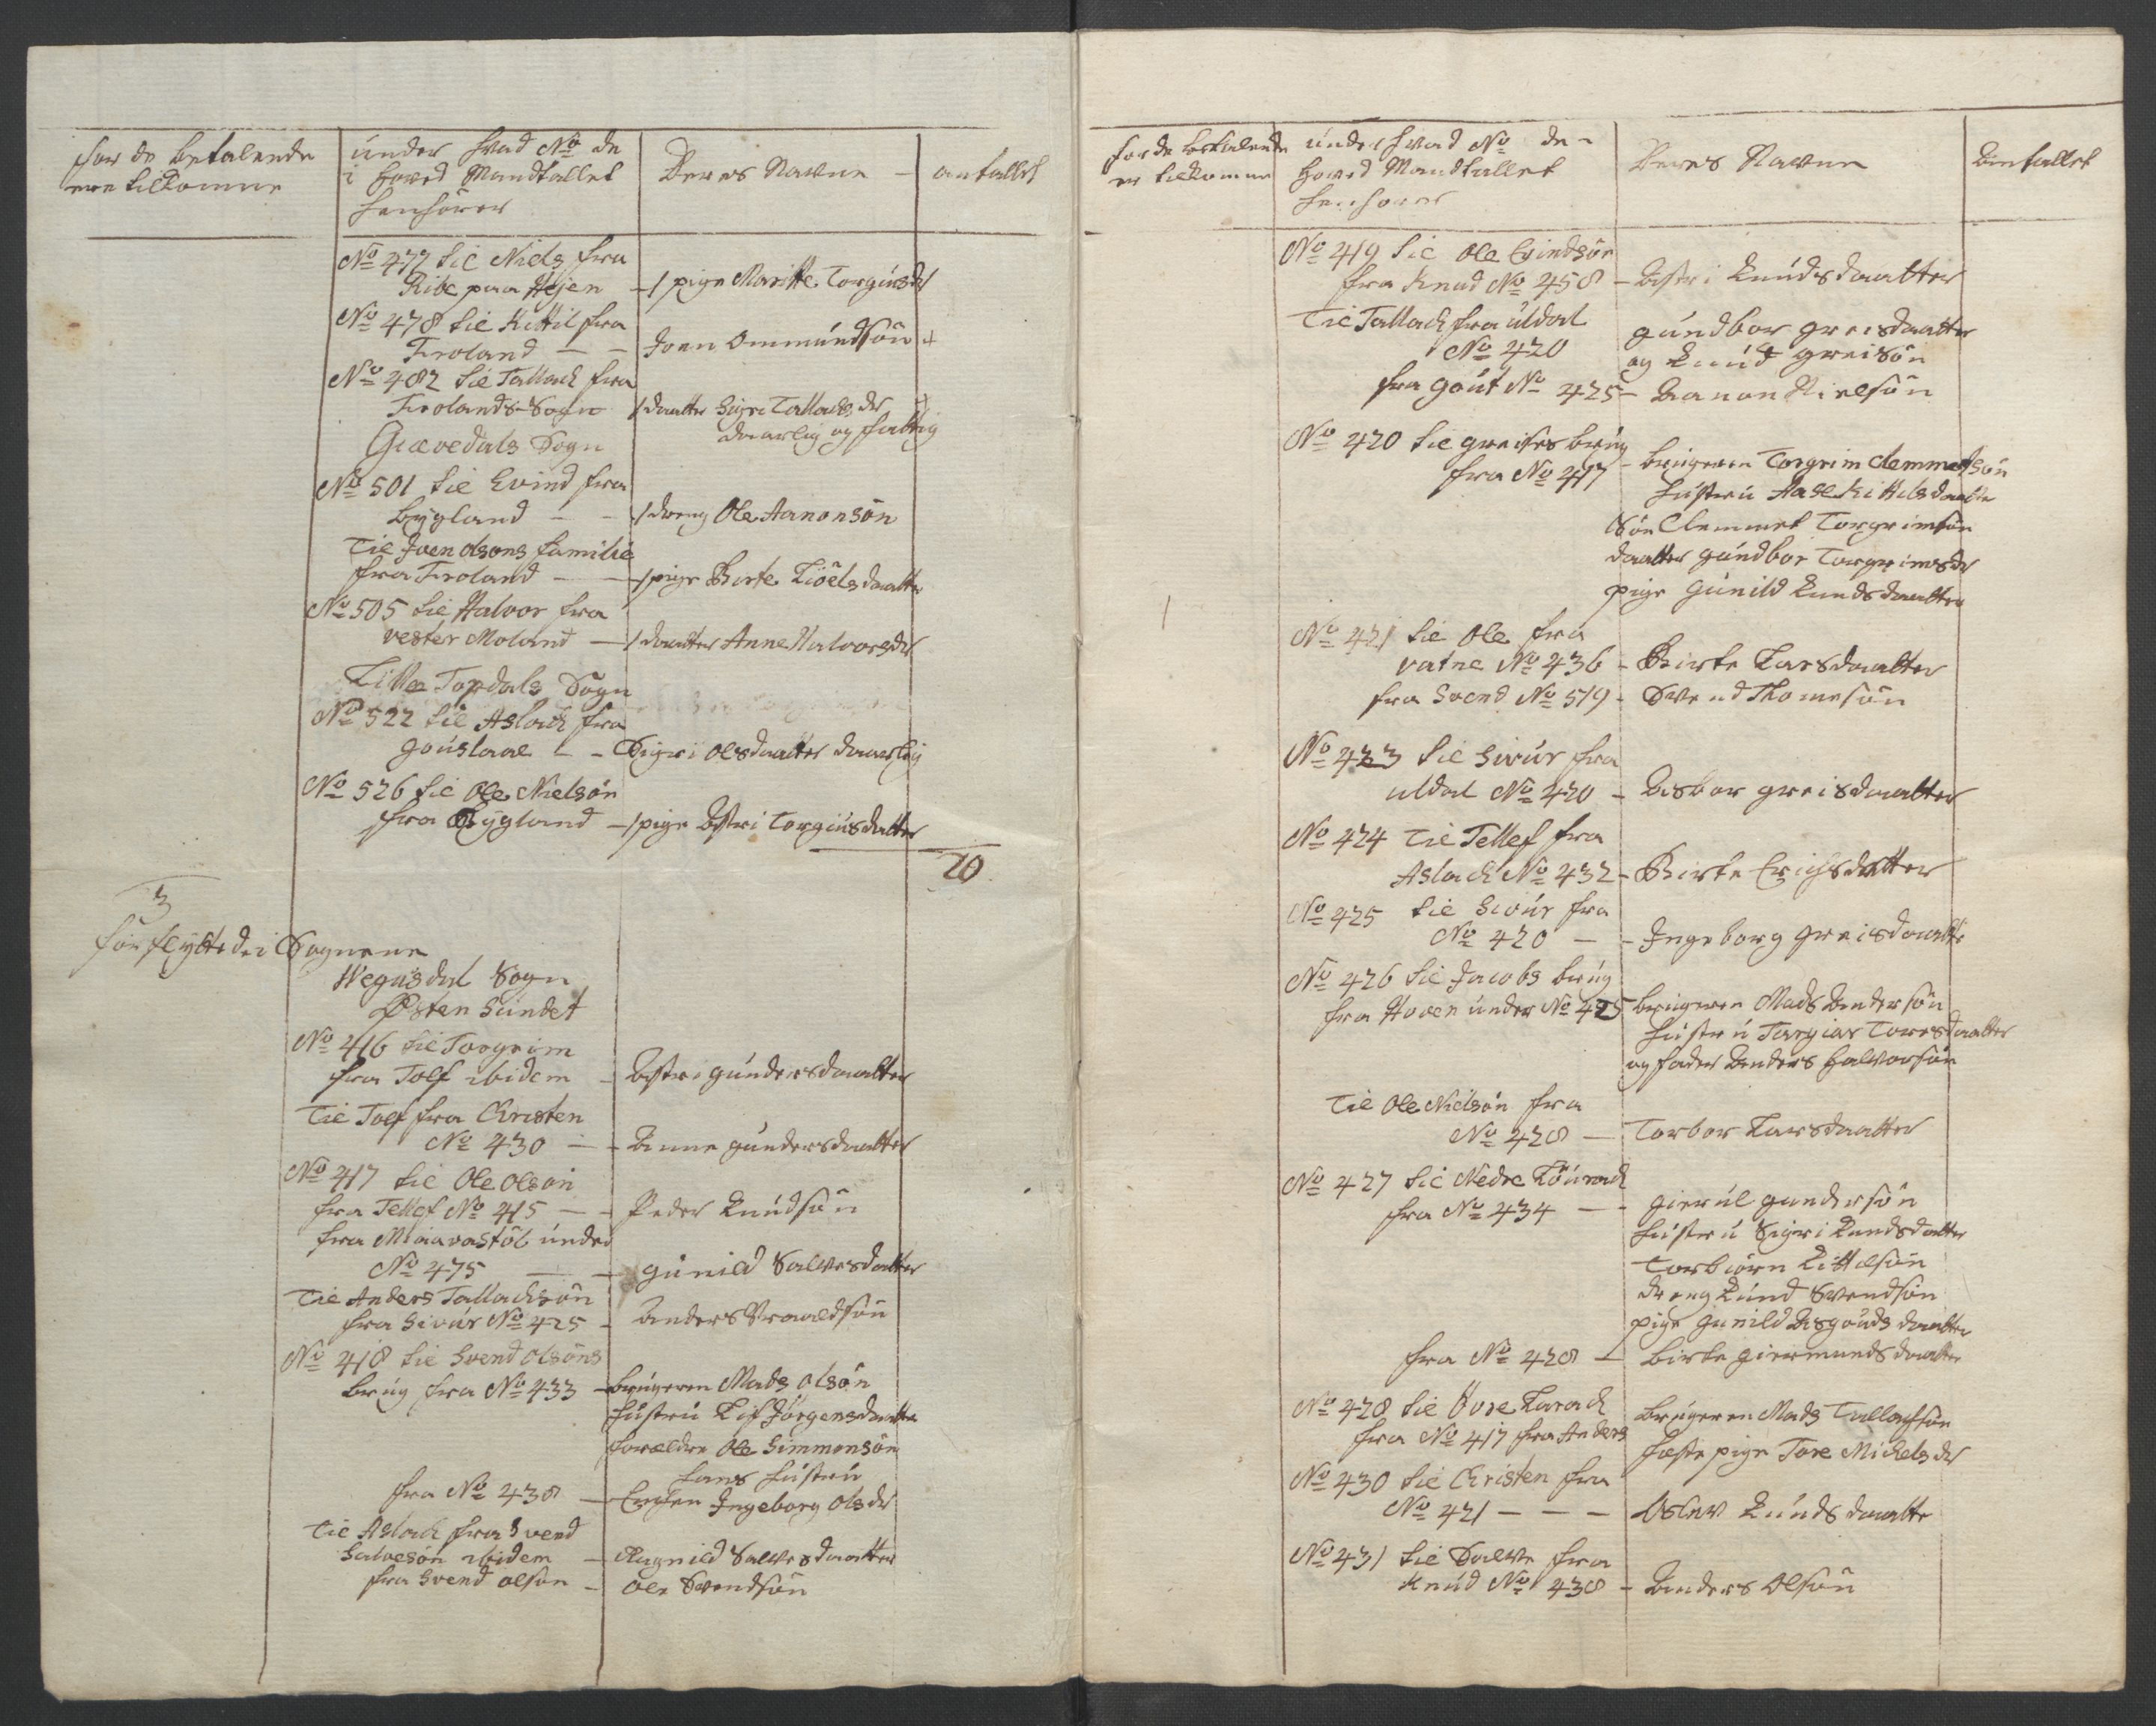 for de betalende
ere tilkomne
under hvad No de
i Hoved Mandtallet
henhörer
Deres Navne
antallet
No 477 til Niels fra
Ribe paa Hejen - 1 pige Maritte Torgiusdr
No 478 til Kittil fra
Froland - - Joen Ommundsön +
No 482 til Tallack fra
Frolands Sogn 1 daatter Sigri Tallacksdr +
daarlig og fattig
Giævedals Sogn
No 501 til Evind fra
Bygland - - 1 dreng Ole Aanonsön
Til Joen Olsons familie
fra Froland - - 1 pige Birte Kiöelsdaatter
No 505 til Halvor fra
vester Moland - 1 daatter Anne Halvorsdr
Lille Topdals Sogn
No 522 til Aslack fra
Gouslaae - - Sigri Olsdaatter daarlig
No 526 til Ole Nielsön
fra Bygland - 1 pige Astri Torgiusdatter
20
3
forflyttede i Sognene
Wegusdal Sogn
Østen Sundet
No 416 til Torgrim
fra Tolf ibidem - Astri Gundersdaatter
Til Tolf fra Christen
No 430 - - Anne Gundersdaatter
No 417 til Ole Olson
fra Tellef No 415 - - Peder Knudsön
fra Miaavastöl under
No 475 - - Gunild Salvesdatter
Til Anders Tallacksön
fra Sivur No 425 - Anders Vraaldsön
No 418 til Svend Olsöns
brug fra No 433 - brugeren Mads Olsön
hustru Lif Jörgensdaatter
forældre Ole Simmonsön
hans hustru
fra No 438 - Enken Ingeborg Olsdr
Til Aslack fra Svend
Salvesön ibidem - Ragnild Salvesdaatter
fra Svend Olson - Ole Svendsön
for de betalende
er tilkomne
under hvad No de -
Hoved Mandtallet
henhorer
Deres Navne
Antallet
No 419 til Ole Evindsön
fra Knud No 458 - Astri Knudsdaatter
Til Tallack fra Uldal
No 420
Gundbor Greisdaatter
og Knud Greisön
fra Gout No 425 - Aanon Nielsön
No 420 til Greises brug
fra No 417 - brugeren Torgrim Clemmetsön
hustru Aase Kittilsdaatter
Sön Clemmet Torgrimsön
daatter Gundbor Torgrimsdr
pige Gunild Knudsdaatter
No 421 til Ole fra
vatne No 436 - Birte Larsdaatter
fra Svend No 519 - Svend Thomesön
No 423 til Sivur fra
Uldal No 420 - Asbor Greisdaatter
No 424 Til Tellef fra
Aslack No 432 - Birte Erichsdatter
No 425 til Sivur fra
No 420 - - Ingeborg Greisdaatter
No 426 til Jacobs brug
fra Hoven under No 425 brugeren Mads Andersön
hustru Targiær Toresdaatter
og fader Anders Halvorsön
Til Ole Nielsön fra
No 428 - Torbor Larsdaatter
No 427 til Nedre
fra No 434 - - Gierul Gundersön
hustru Sigri Knudsdatter
Torbiörn Kittelsön
dreng Knud Svendsön
pige Gunild Asgoudsdaatter
fra No 428 - Birte Giermundsdaatter
No 428 til Övre
fra No 417 fra Anders
brugeren Mads Tallachsön
fæste pige Tore Mickelsdr
No 430 til Christen fra
No 421 - - - Oslav Knudsdaatter
No 431 til Salve fra
Knud No 438 - Anders Olsön